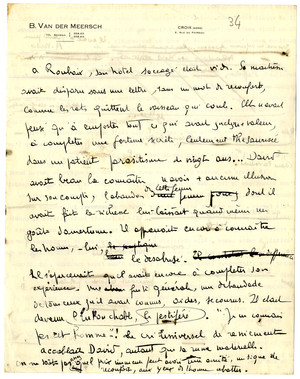 B. VAN DER MEERSCH
CROIX (NORD)
34
à Roubaix, son hôtel saccagé était vide. Sa maîtresse
avait disparu sans une lettre, sans un mot de réconfort,
comme les rats quittent le vaisseau qui coule. Elle n'avait
pensé qu'à emporter tout ce qui avait quelque valeur,
à compléter une fortune secrète, lentement thésaurisée
dans un patient parasitisme de vingt ans... David
avait beau la connaître, n'avoir aucune illusion
sur son compte, l'abandon de cette femme dont il
avait fait la richesse lui laissait quand même un
goût d'amertume. Il apprenait encore à connaître
les hommes, lui,
le désabusé.
Il s'apercevait qu'il avait encore à compléter son
expérience. fuite générale, une débandade
de tous ceux qu'il avait connus, aidés, secourus. Il était
devenu l'intouchable, le pestiféré. "Je ne connais
pas cet homme"! Le cri universel de reniement
accablait David, autant que sa ruine matérielle.